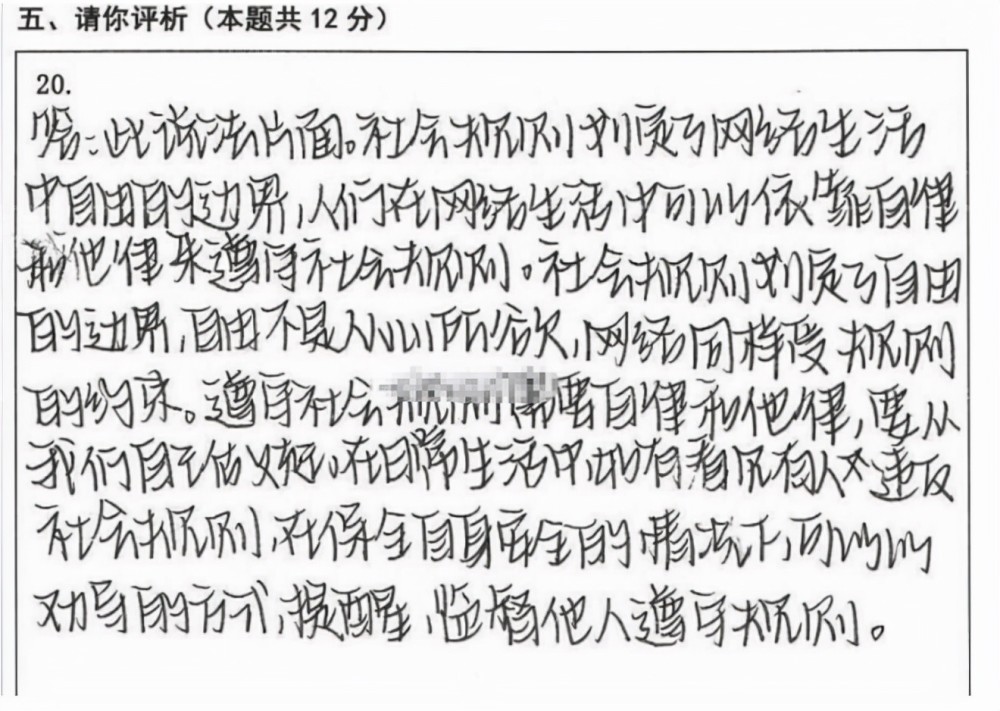 五、请你评析（本题共12分）
20.
答：此说法片面。社会规则划定了网络生活
中自由的边界，人们在网络生活中可以依靠自律
和他律来遵守社会规则。社会规则划定了自由
的边界，自由不是人心所欲，网络同样受规则
的约束。遵守社会规则需要自律和他律，要从
我们自己做起。在日常生活中，如有看见有人违反
社会规则，在保全自身安全的情况下，可以以
劝导的方式，提醒，监督他人遵守规则。